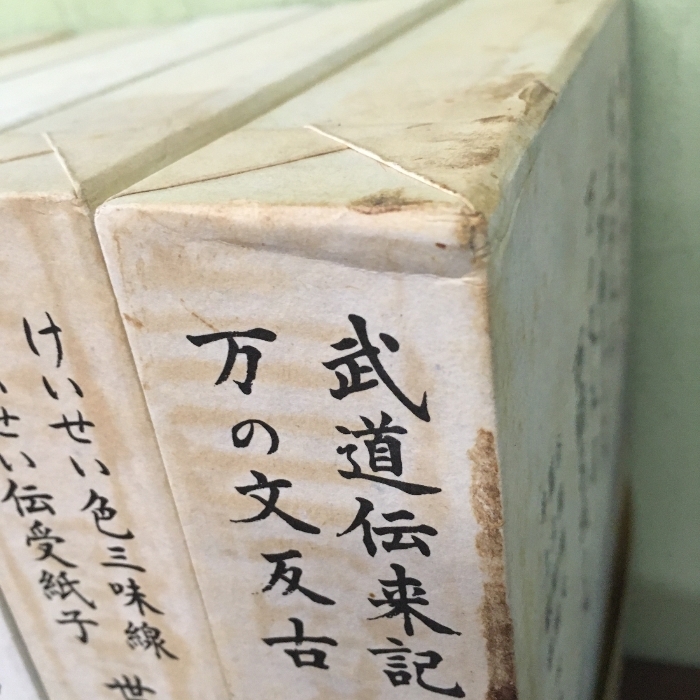 武道伝来記
万の文反古
けいせい色三味線
いせい伝受紙子
世